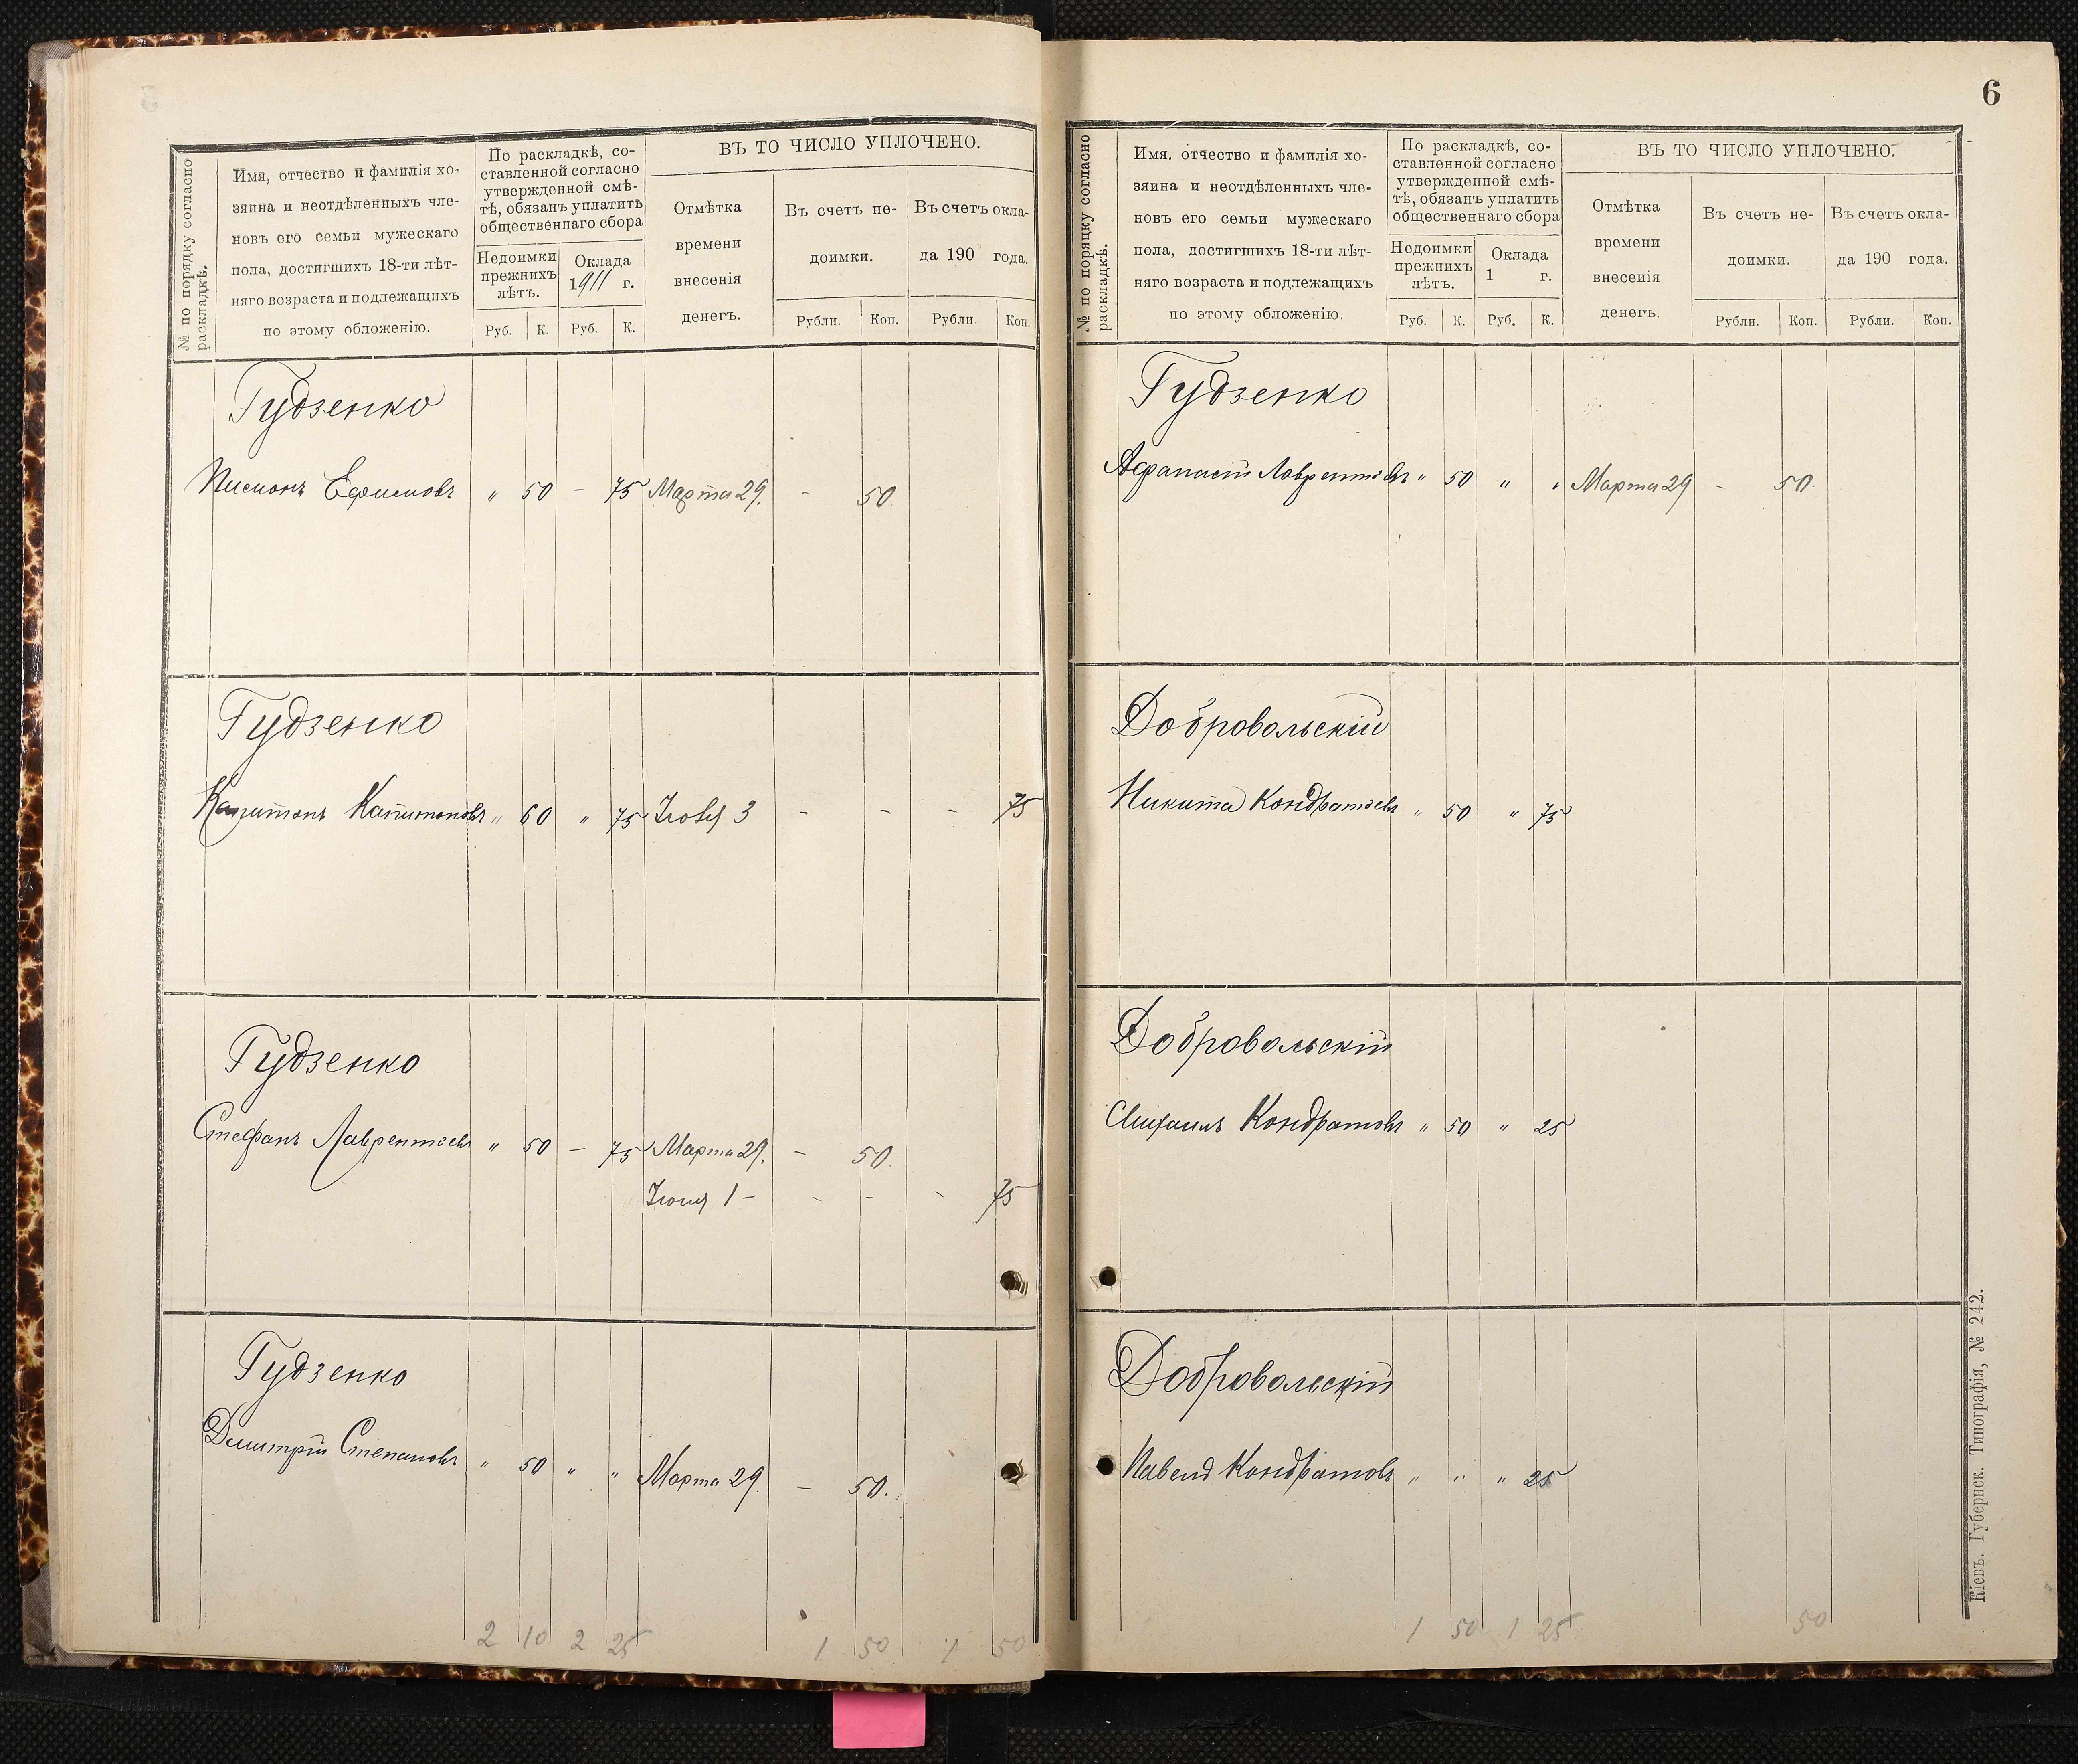 № по порядку согласно
раскладкѣ.
Имя, отчество и фамилія хо-
зяина и неотдѣленныхъ чле-
новъ его семьи мужескаго
пола, достигшихъ 18-ти лѣт-
няго возраста и подлежащихъ
по этому обложенію.
По раскладкѣ, со-
ставленной согласно
утвержденной смѣ-
тѣ, обязанъ уплатить
общественнаго сбора
Недоимки
прежнихъ
лѣтъ.
Оклада
1911 г.
Руб. К. Руб. К.
ВЪ ТО ЧИСЛО УПЛОЧЕНО.
Отмѣтка
времени
внесенія
денегъ.
Въ счетъ не-
доимки.
Въ счетъ окла-
да 190 года.
Рубли. Коп. Рубли. Коп.
Гудзенко
Ефимовъ " 50 - 75 Марта 29. - 50
Гудзенко
Капитонъ Капитоновъ " 60 " 75 3 - - - 75
Гудзенко
Стефанъ Лаврентіевъ " 50 - 75 Марта 29. - 50.
Іюня 1 - - - - 75
Гудзенко
Димитрій Степановъ " 50 " " Марта 29. - 50.
2 10 2 25 1 50 1 50
6
№ по порядку согласно
раскладкѣ.
Имя. отчество и фамилія хо-
зяина и неотдѣленныхъ чле-
новъ его семьи мужескаго
пола, достигшихъ 18-ти лѣт-
няго возраста и подлежащихъ
по этому обложенію.
По раскладкѣ, со-
ставленной согласно
утвержденной смѣ-
тѣ, обязанъ уплатить
общественнаго сбора
Недоимки
прежнихъ
лѣтъ.
Оклада
1 г.
Руб. К. Руб. К.
ВЪ ТО ЧИСЛО УПЛОЧЕНО.
Отмѣтка
времени
внесенія
денегъ.
Въ счетъ не-
доимки.
Въ счетъ окла-
да 190 года.
Рубли. Коп. Рубли. Коп.
Гудзенко
Афанасій Лаврентіевъ " 50 " " Марта 29 - 50.
Добровольскій
Никита Кондратіевъ " 50 " 75
Добровольскій
Михаилъ Кондратовъ " 50 " 25
Добровольскій
Павелъ Кондратовъ " " " 25
1 50 1 25 50
Кіевъ. Губернск. Типографія, № 242.